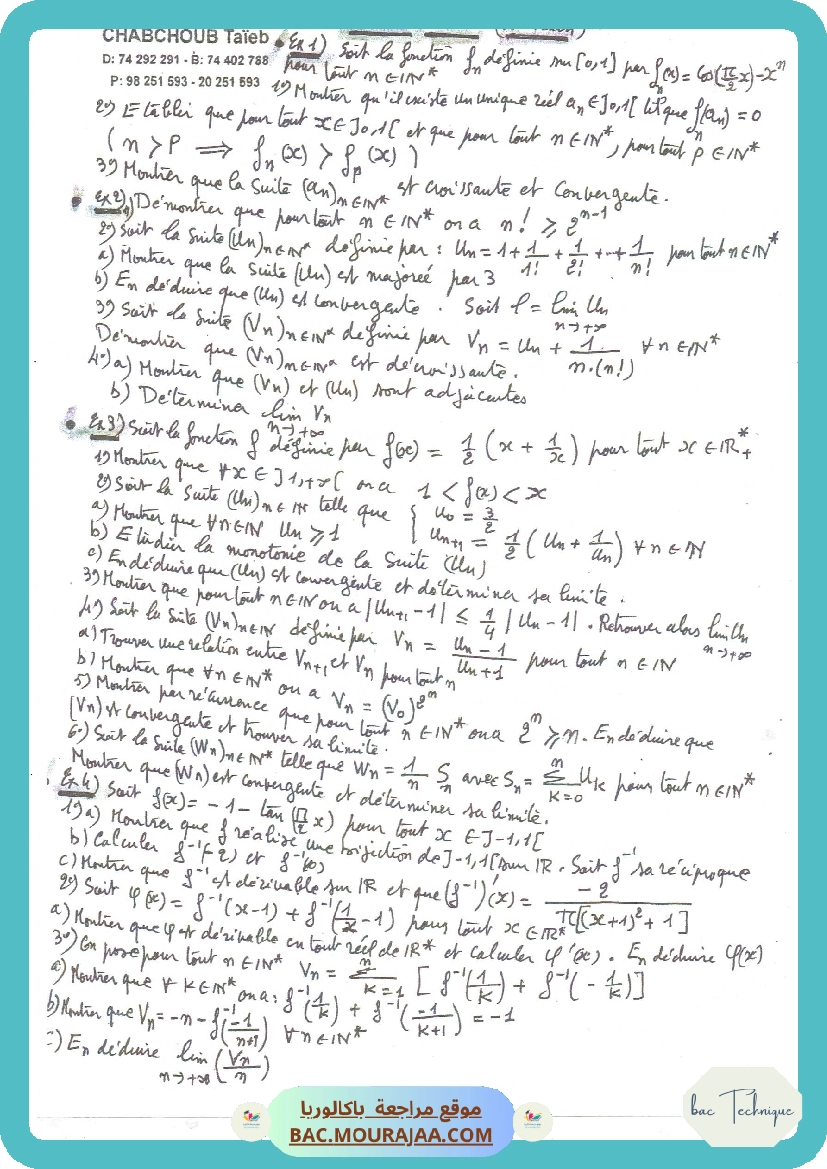 CHABCHOUB Taïeb
D: 74 292 291 - B: 74 402 788
P: 98 251 593 - 20 251 593
Ex 1) Soit la fonction fn définie sur [0,1] par fn(x) = cos(π/2 x) - x^n
pour tout n ∈ IN*
1°) Montrer qu'il existe un unique réel an ∈ ]0,1[ tel que fn(an) = 0
2°) Etablir que pour tout x ∈ ]0,1[ et que pour tout n ∈ IN*, pour tout p ∈ IN*
(n > p ⟹ fn(x) > fp(x))
3°) Montrer que la suite (an)n∈IN* est croissante et convergente.
Ex 2) 1) Démontrer que pour tout n ∈ IN* on a n! ≥ 2^(n-1)
2°) Soit la suite (Un)n∈IN* définie par : Un = 1 + 1/1! + 1/2! + ... + 1/n! pour tout n ∈ IN*
a) Montrer que la suite (Un) est majoreé par 3
b) En déduire que (Un) est convergente. Soit l = lim Un n→+∞
3°) Soit la suite (Vn)n∈IN* définie par Vn = Un + 1/(n.(n!)) ∀ n ∈ IN*
Démontrer que (Vn)n∈IN* est décroissante.
4°) a) Montrer que (Vn) et (Un) sont adjacentes
b) Déterminer lim Vn n→+∞
Ex 3) Soit la fonction f définie par f(x) = 1/2 (x + 1/x) pour tout x ∈ IR*+
1°) Montrer que ∀x ∈ ]1,+∞[ on a 1 < f(x) < x
2°) Soit la suite (Un)n∈IN telle que { U0 = 3/2
Un+1 = 1/2 (Un + 1/Un) ∀ n ∈ IN
a) Montrer que ∀n ∈ IN Un ≥ 1
b) Etudier la monotonie de la suite (Un)
c) En déduire que (Un) est convergente et déterminer sa limite.
3°) Montrer que pour tout n ∈ IN on a |Un+1 - 1| ≤ 1/4 |Un - 1|. Retrouver alors lim Un n→+∞
4°) Soit la suite (Vn)n∈IN définie par Vn = (Un - 1)/(Un + 1) pour tout n ∈ IN
a) Trouver une relation entre Vn+1 et Vn pour tout n
b) Montrer que ∀n ∈ IN* on a Vn = (V0)^(2^n)
5°) Montrer par récurrence que pour tout n ∈ IN* on a 2^n ≥ n. En déduire que
(Vn) est convergente et trouver sa limite.
6°) Soit la suite (Wn)n∈IN* telle que Wn = 1/n Sn avec Sn = Σ(k=0 à n) Uk pour tout n ∈ IN*
Montrer que (Wn) est convergente et déterminer sa limite.
Ex 4) Soit f(x) = -1 - tan(π/2 x) pour tout x ∈ ]-1,1[
1°) a) Montrer que f réalise une bijection de ]-1,1[ sur IR. Soit f⁻¹ sa réciproque
b) Calculer f⁻¹(-2) et f⁻¹(0)
c) Montrer que f⁻¹ est dérivable sur IR et que (f⁻¹)'(x) = -2/(π[(x+1)²+1])
2°) Soit φ(x) = f⁻¹(x-1) + f⁻¹(1/x - 1) pour tout x ∈ IR*
a) Montrer que φ est dérivable en tout réel de IR* et calculer φ'(x). En déduire φ(x)
3°) On pose pour tout n ∈ IN* Vn = Σ(k=1 à n) [f⁻¹(1/k) + f⁻¹(-1/k)]
a) Montrer que ∀ k ∈ IN* on a : f⁻¹(1/k) + f⁻¹(-1/(k+1)) = -1
b) Montrer que Vn = -n - f⁻¹(-1/(n+1)) ∀ n ∈ IN*
c) En déduire lim (Vn/n) n→+∞
bac Technique
موقع مراجعة باكالوريا
BAC.MOURAJAA.COM